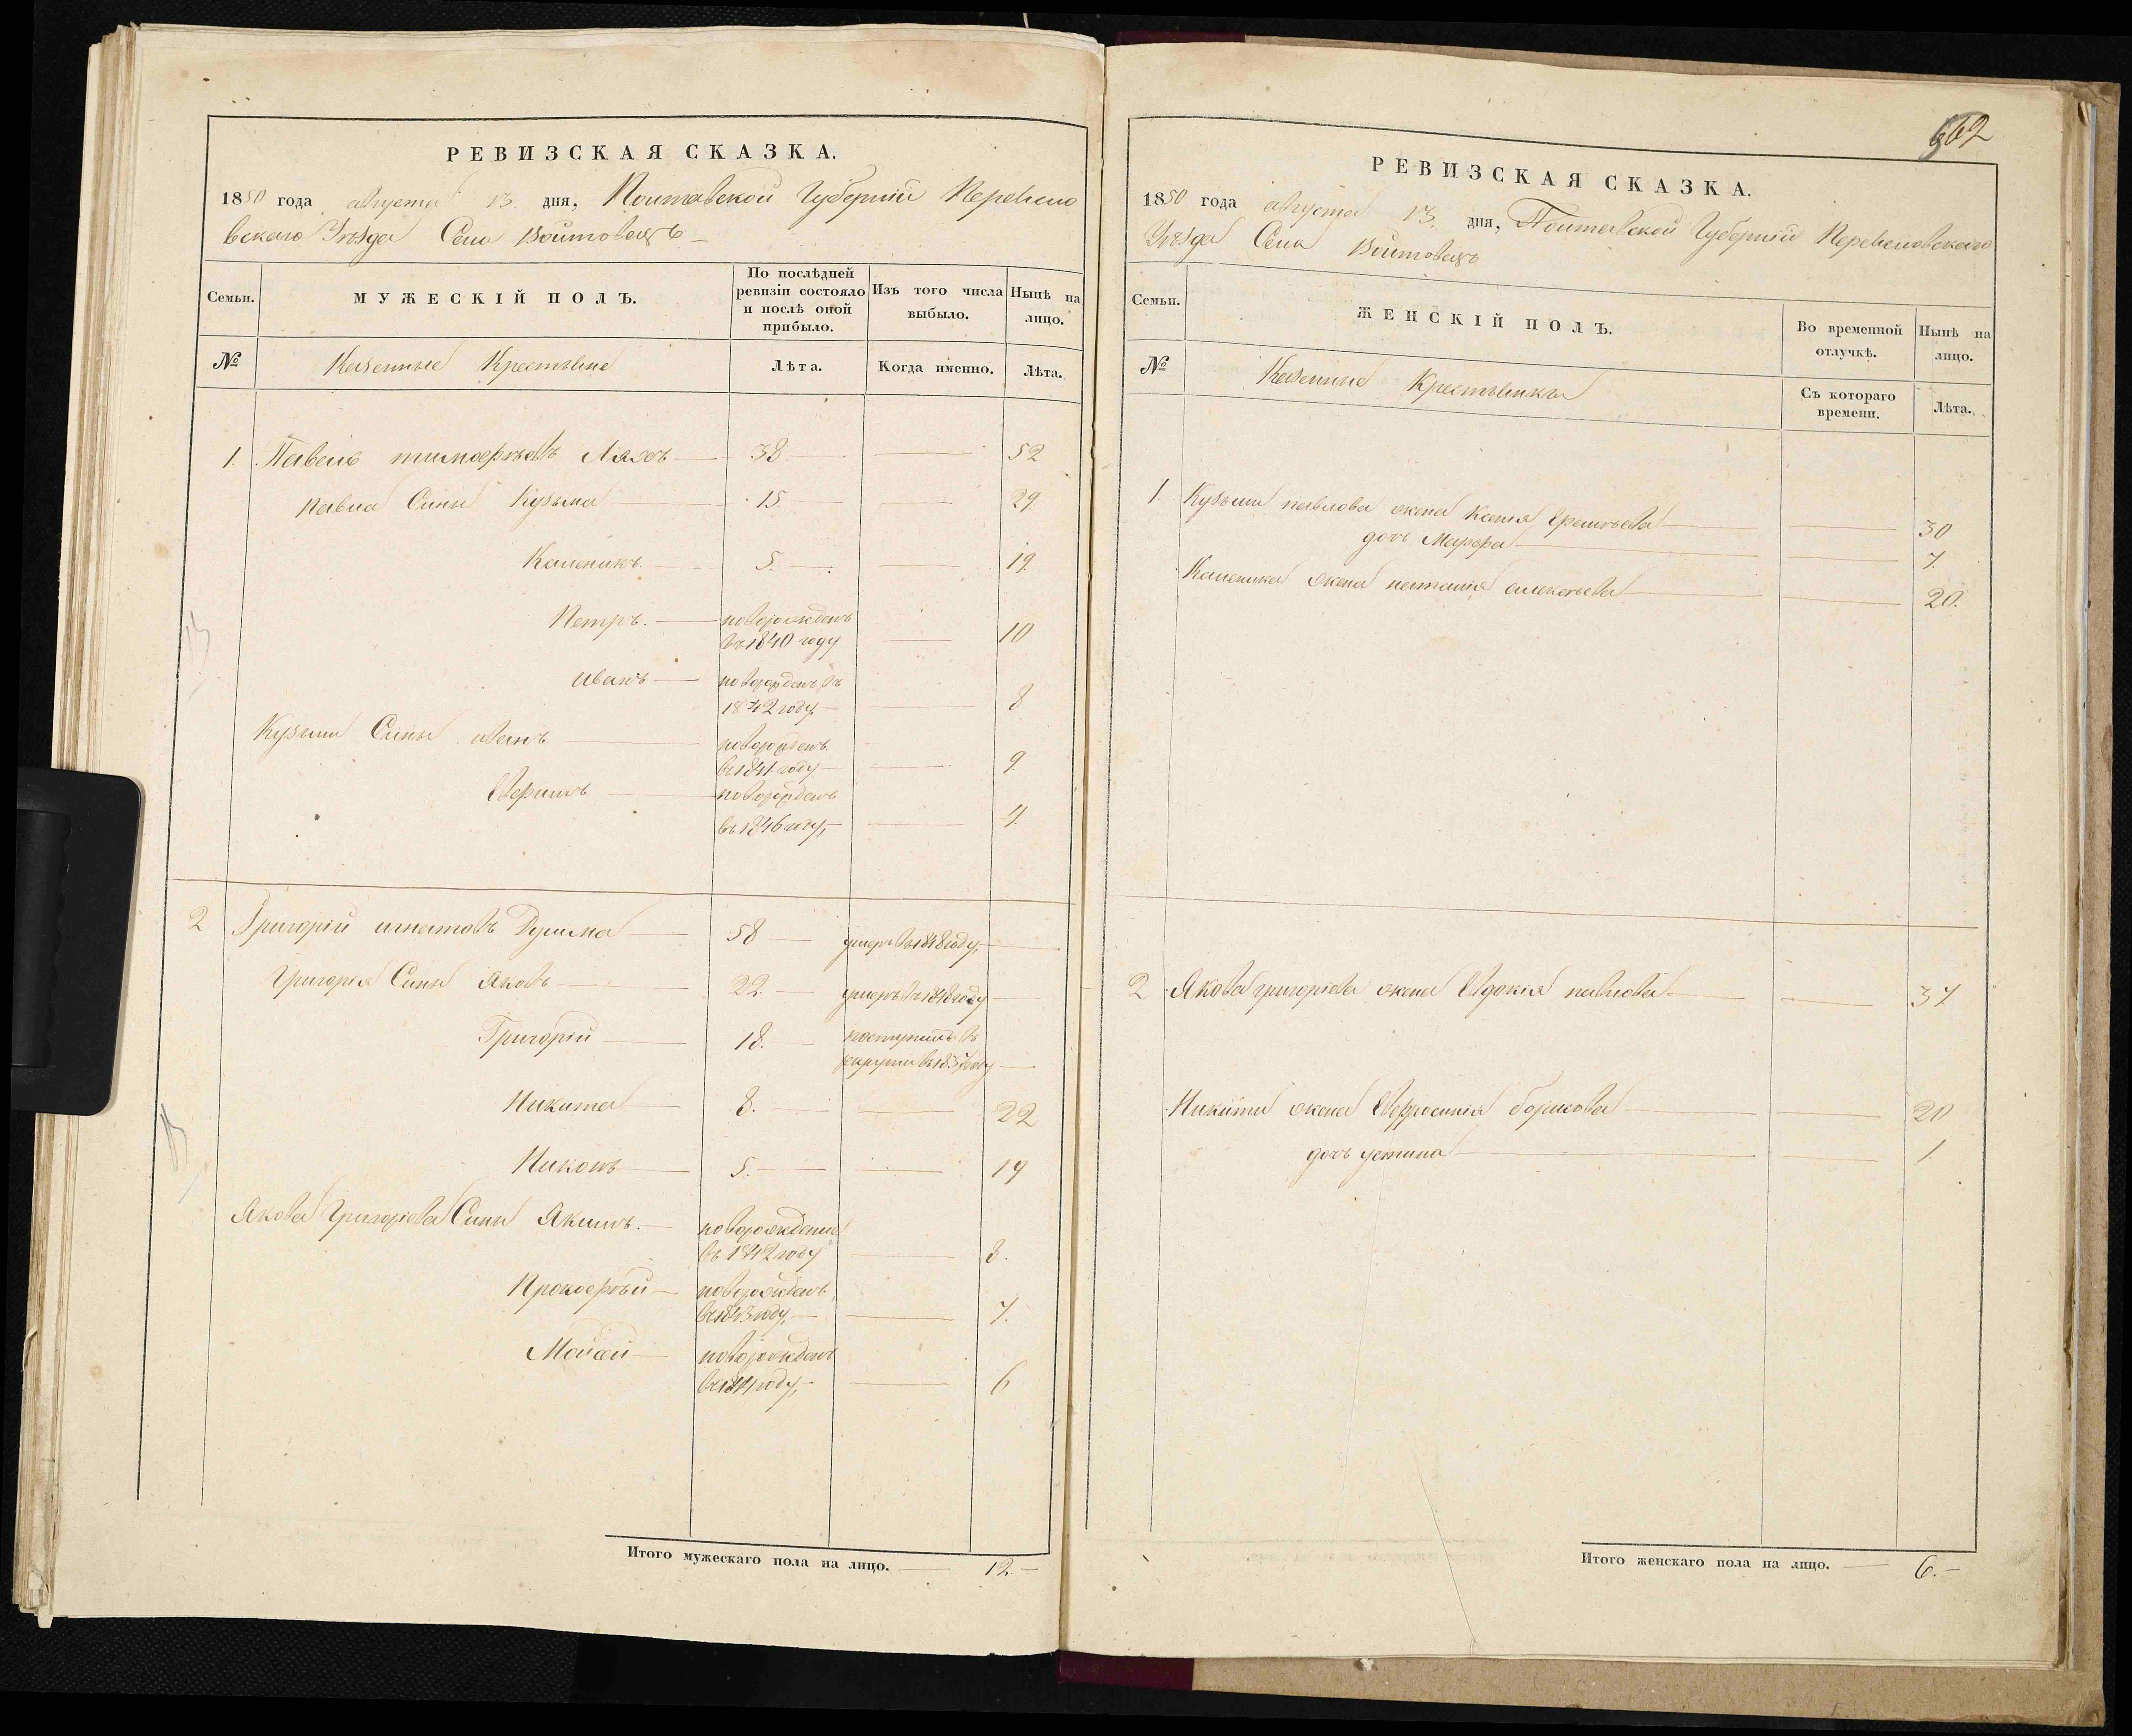 РЕВИЗСКАЯ СКАЗКА.
1850 года августа 13. дня, Полтавской Губернии Переясло
вскаго Уѣзда Села Войтовецъ
Семьи.
МУЖЕСКІЙ ПОЛЪ.
По послѣдней
ревизіи состояло
и послѣ оной
прибыло.
Изъ того числа
выбыло.
Нынѣ на
лицо.
№
Казенные Крестьяне
Лѣта.
Когда именно.
Лѣта.
1. Павелъ тимофѣевъ Ляхъ 38 52
Павла Сины Кузьма 15 29
Каленикъ 5. 19
Петръ. новорожденъ
въ 1840 году 10
иванъ новорожденъ въ
1842 году 8
Кузьмы Сины иванъ новорожденъ
въ 1841 году 9
новорожденъ
въ 1846 году, 4
2 Григорій игнатовъ 58 умеръ въ 1848 году,
Григорія Сины Яковъ 22. умеръ въ 1848 году
Григорій 18. поступилъ въ
рекруты въ 1837 году
Никита 8. 22
Никонъ 5. 19
Якова Григоріева Сины Якимъ. новорожденъ
въ 1842 году 8.
Прокофій новорожденъ
въ 1843 году, 7.
Мойсей новорожденъ
въ 1844 году, 6
Итого мужескаго пола на лицо. 12.
РЕВИЗСКАЯ СКАЗКА.
1850 года августа 13. дня, Полтавской Губернии Переясловскаго
Уѣзда Села Войтовецъ
Семьи.
ЖЕНСКІЙ ПОЛЪ.
Во временной
отлучкѣ.
Нынѣ на
лицо.
№
Казенные Крестьянки
Съ котораго
времени.
Лѣта.
1. Кузьмы павлова жена Ксенія 30
дочь Марфа 7.
Каленика жена наталия алексѣева 20.
2 Якова григоріева жена Евдокія павлова 37
Никиты жена Евфросинія борисова 20
дочь устина 1
Итого женскаго пола на лицо. 6.